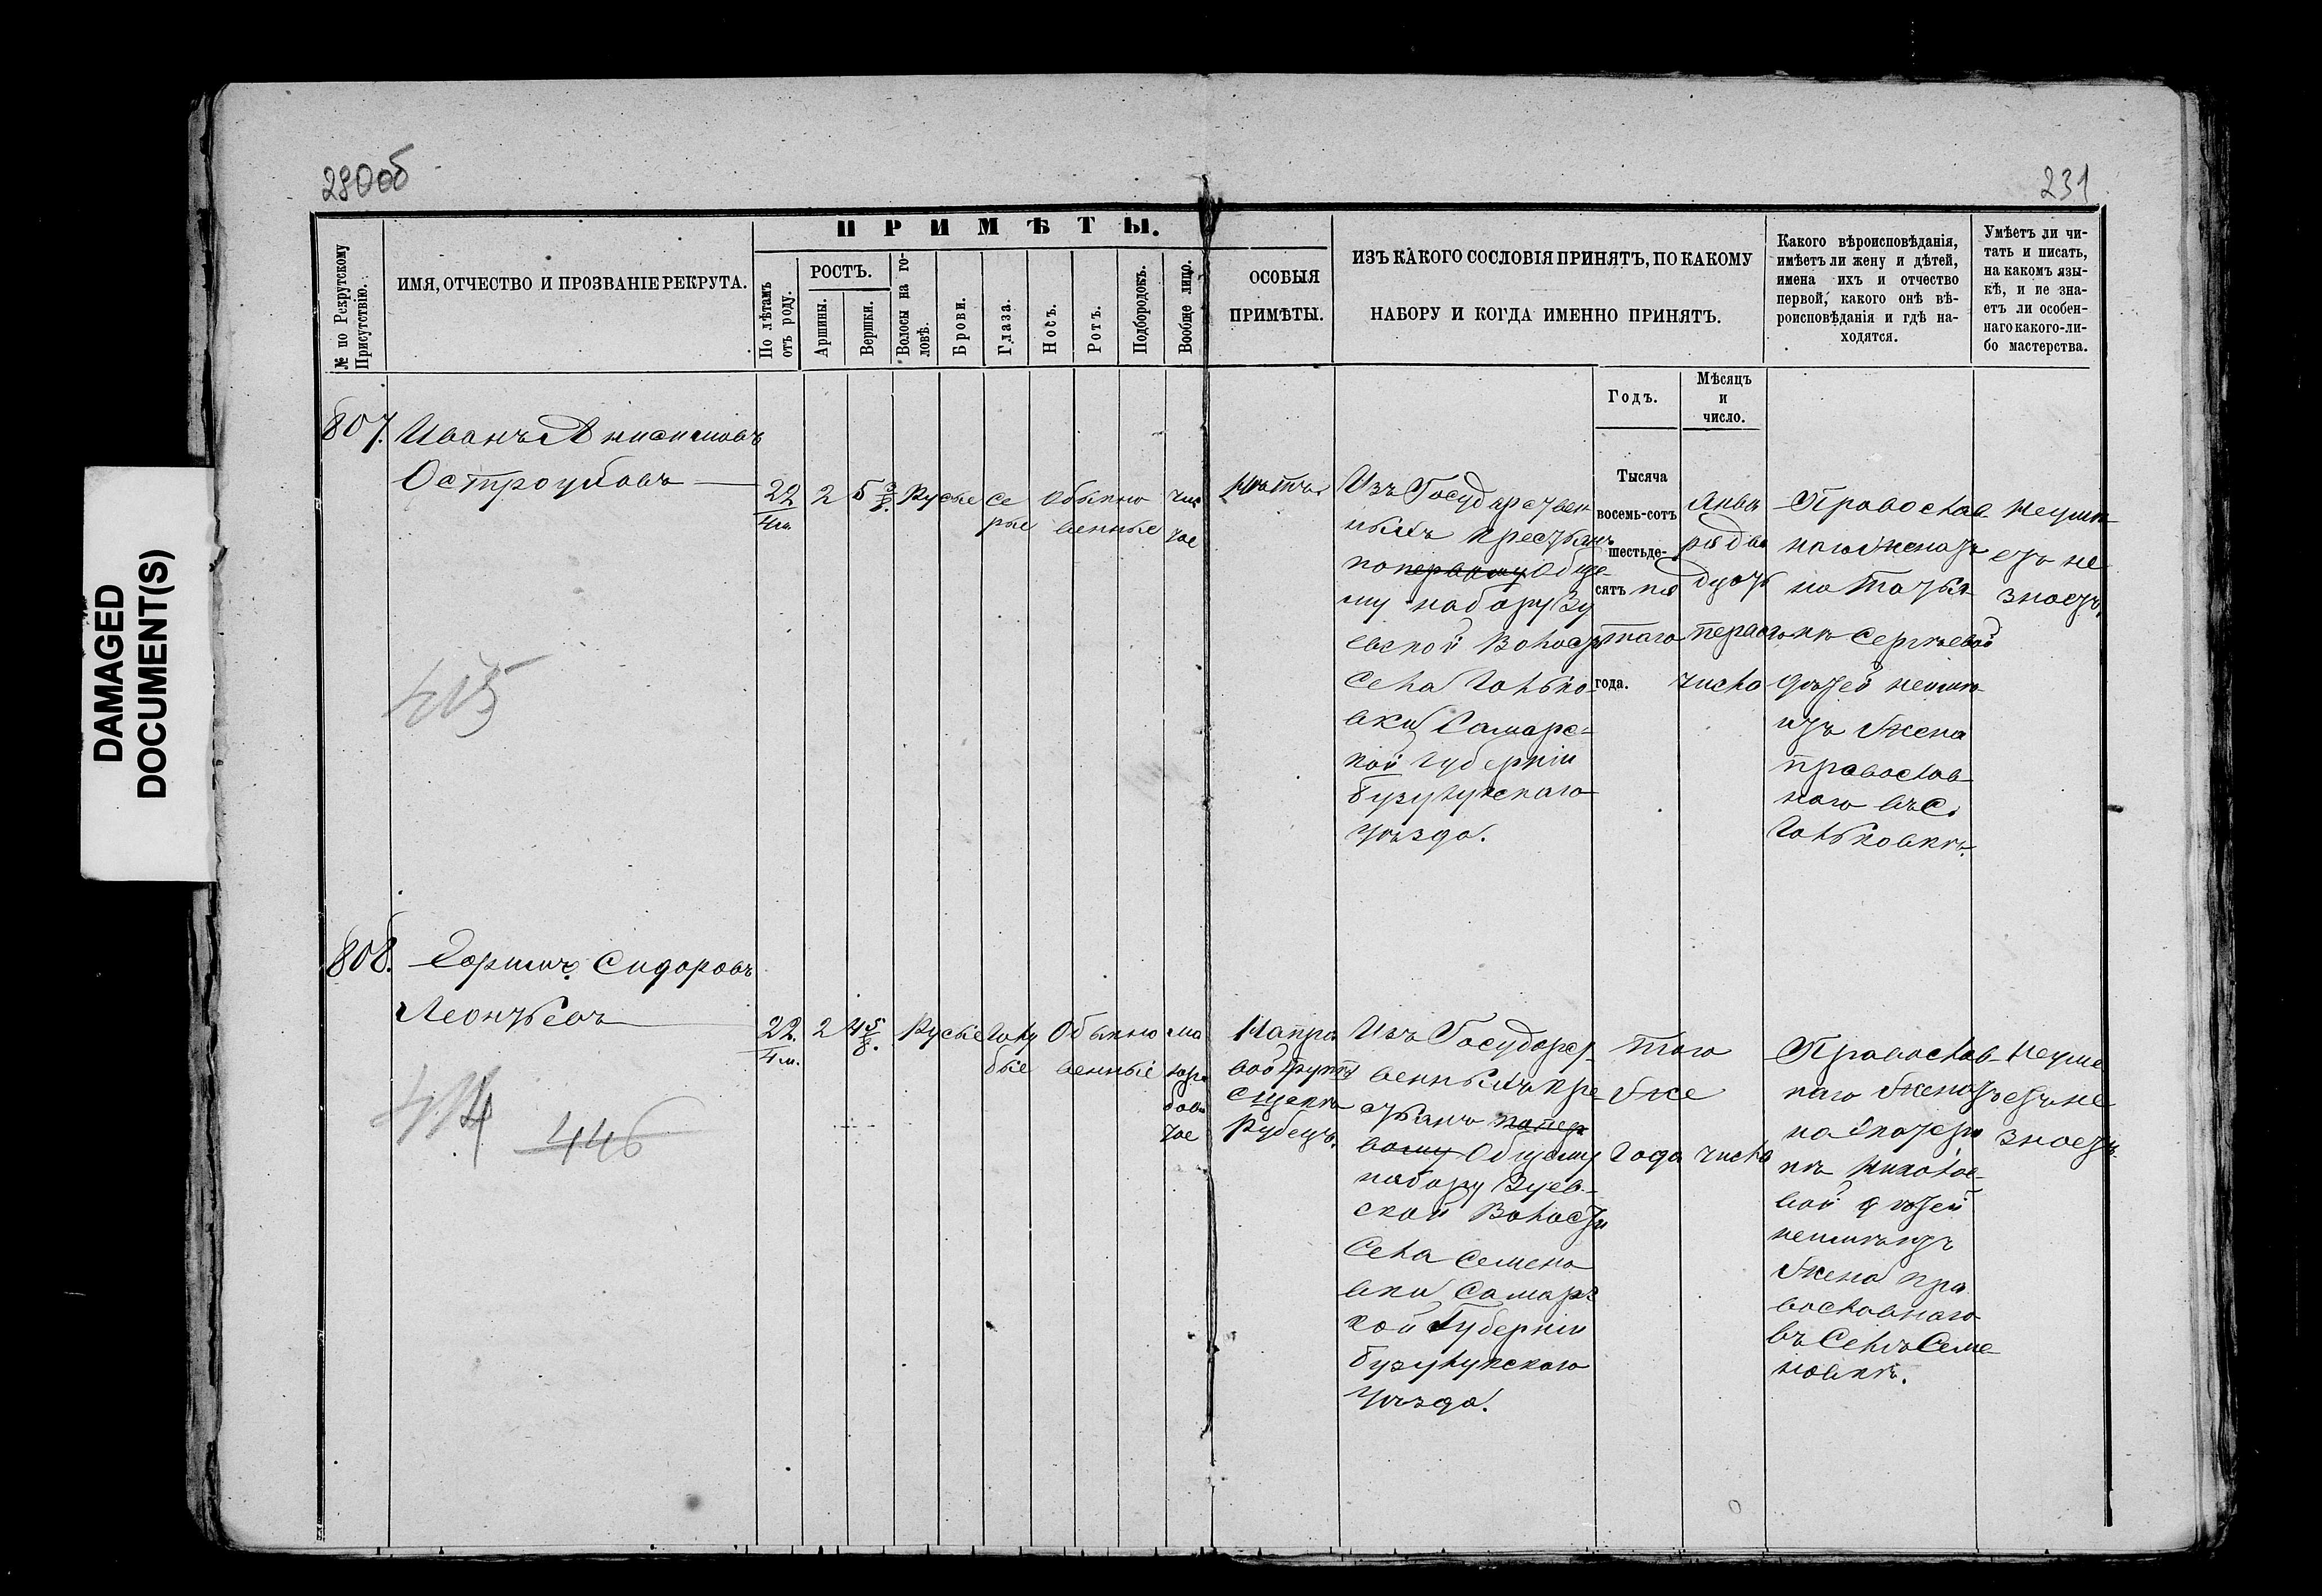 290об
231
DAMAGED
DOCUMENT(S)
№ по Рекрутскому
Присутствію.
ИМЯ, ОТЧЕСТВО И ПРОЗВАНІЕ РЕКРУТА.
ПРИМѢТЫ.
По лѣтамъ
отъ роду.
РОСТЪ.
Аршины.
Вершки.
Волосы на го-
ловѣ.
Брови.
Глаза.
Носъ.
Ротъ.
Подбородокъ.
Вообще лицо.
ОСОБЫЯ
ПРИМѢТЫ.
ИЗЪ КАКОГО СОСЛОВІЯ ПРИНЯТЪ, ПО КАКОМУ
НАБОРУ И КОГДА ИМЕННО ПРИНЯТЪ.
Какого вѣроисповѣданія,
имѣетъ ли жену и дѣтей,
имена ихъ и отчество
первой, какого онѣ вѣ-
роисповѣданія и гдѣ на-
ходятся.
Умѣетъ ли чи-
тать и писать,
на какомъ язы-
кѣ, и не зна-
етъ ли особен-
наго какого-ли-
бо мастерства.
Годъ.
Мѣсяцъ
и
число.
807.
Иванъ Анисимовъ
Остроумовъ
22
4 м.
2
5 3/8.
Русые
Се
рые
Обыкно
венные
чис
тое
Нѣтъ
Изъ Государствен
ныхъ крестьянъ
по первому Обще-
му набору Зу
евской Волости
Села Галько-
вки Самарс-
кой Губерніи
Бузулукскаго
Уѣзда.
Тысяча
восемь-сотъ
шестьде-
сятъ пя
таго
года.
Янва
ря два
дцать
перваго
число
Православ
наго женатъ
на Татья
нѣ Сергѣевой
дѣтей неимѣ
етъ Жена
православ
наго въ С.
Гальковкѣ.
Неумѣ
етъ не
знаетъ
415
808.
Ефимъ Сидоровъ
Леонтьевъ
22.
4 м.
2
4 5/8.
Русые
Голу
бые
Обыкно
венные
ма
торо
вато
тое
На пра
вой
щекѣ
Рубецъ.
Изъ Государст
венныхъ кре
стьянъ по пер
вому Общему
набору Зуев-
ской Волости
Села Семено
вки Самарс
кой Губерніи
Бузулукскаго
Уѣзда.
Того
же
Года
числа
Православ
наго женатъ
на Екатери
нѣ Николае
вой дѣтей
неимѣетъ
Жена пра
вославнаго
въ Селѣ Семе
новкѣ.
Неуме
етъ не
знаетъ
414
446